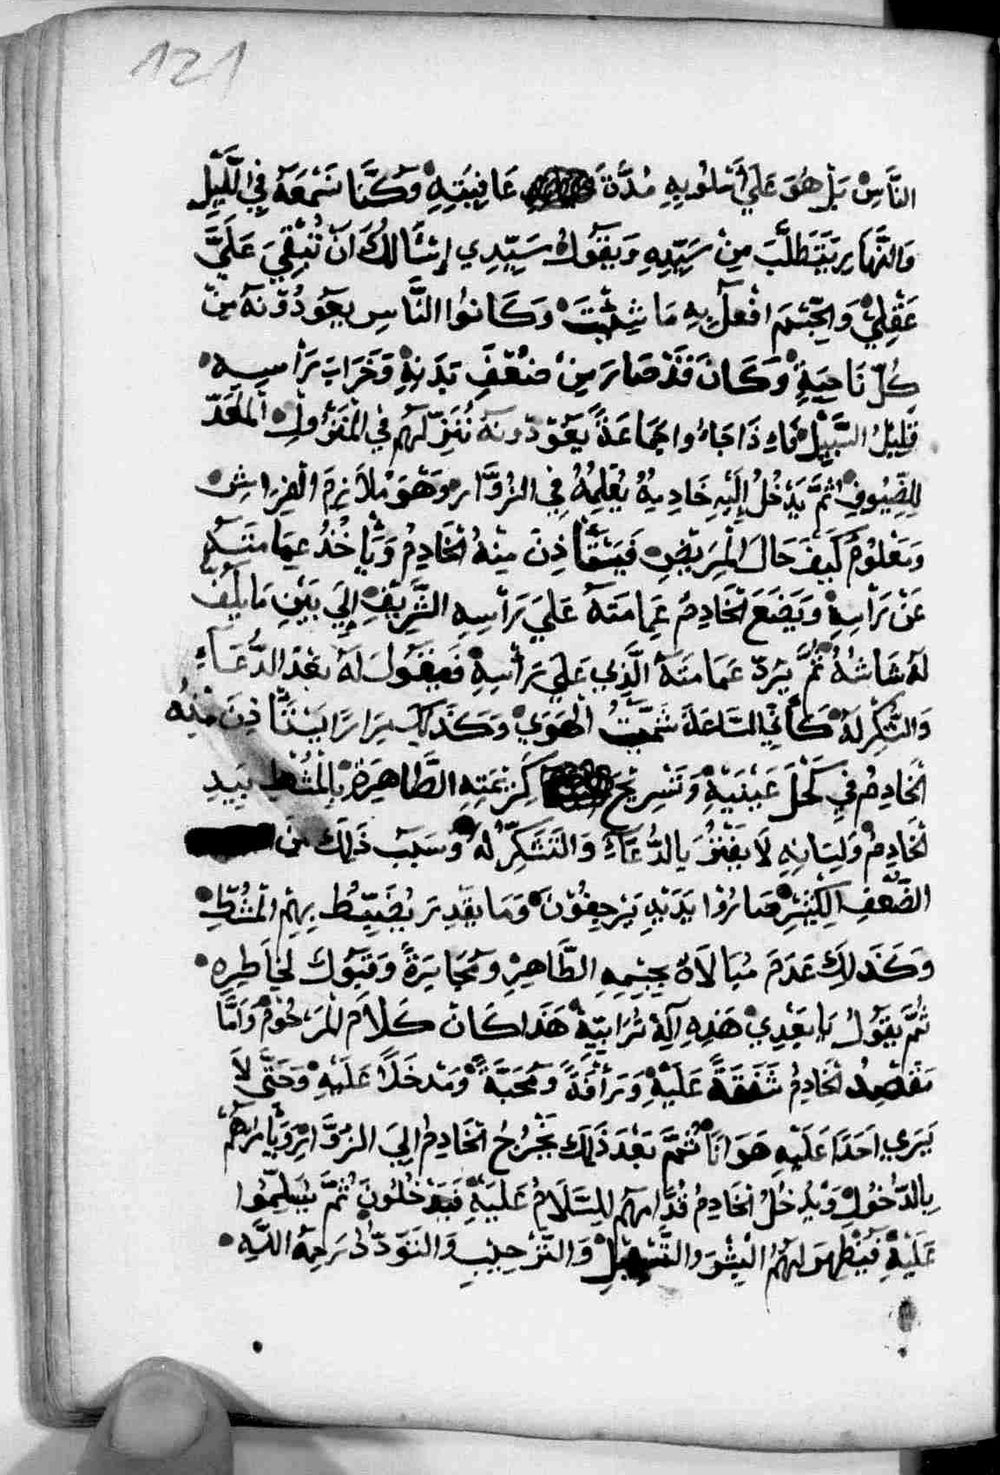 121
النَّاسْ بَلْ هُوَ عَلَيَ أُسْلُوبِهِ مُدَّةَ عَافِيَتِهِ وَكُنَّا نَسْمَعَهُ فِي اللَّيْلِ
وَالنَّهَارِ يَتَطَلَّبَ مِنْ سَيِّدِهِ وَيَقُولْ سَيِّدِي إسْئَالُكَ انَ تُبْقِيَ عَلَيَّ
عَقْلِيْ وَالجِّسْمَ افْعَلْ بِهِ مَا شِئْتَ وَكَانُوا النَّاسِ يَعُودُوْنَهُ مِنْ
كُلِّ نَاحِيَةٍ وَكَانَ قَدْ صَارَ مِنْ ضُعْفِ بَدَنِهِ وَخَرَابَ رَأسِهِ
قَلِيْلُ السَّبِيْلْ فَاءِذَا جَاءُوا جَمَاعَةً يَعُوْدُونَهُ نُنَزِّلَهُمْ فِي الْمَنْزُولِ الْمُعَدّ
لِلضِّيُوفِ ثُمَّ يَدْخُلُ إلَيْهِ خَادِمِهُ يُعْلِمُهُ فِي الزُّوَّارِ وَهُوَ مُلاَزِمَ الْفِرَاشِ
وَمَعْلُوْمْ كَيْفَ حَالَ الْمَرِيْضِ فَيَسْتَأذِنَ مِنْهُ الْخَادِمُ وَيَأخُذُ عِمَامَتَهُ
عَنْ رَأسِهِ وَيَضَعَ الْخَادِمُ عِمَامَتَهُ عَلَيَ رَأسِهِ الشَّرِيْفِ إلَي بَيْنِ مَا يَلُفّ
لَهُ شَاشُهُ ثُمَّ يَرُدّ عَمَامَتَهُ الَّذِي عَلَيَ رَأسِهِ فَيَقُولَ لَهُ بَعْدَ الدُّعَاءِ
وَالشُّكْرِ لَهُ كَأَنِّي السَّاعَةَ شَمَّيْتُ الْهَوَيْ وَكَذَلِكَ مِرَارًا يَسْتَأذِنَ مِنْهُ
الْخَادِمُ فِي كَحْلَ عَيْنَيْهِ وَتَسْرِيْحْ كَرِيْمَتِهِ الطَّاهِرَةْ بِالْمُشْطِ بِيَدِ
الْخَادِمْ وَلِسَانِهِ لَا يَفْتُرُ بِالدُّعَاءِ وَالتَشَكُّرِ لَهُ وَسَبَبَ ذَلِكَ مِنَ
الضُّعْفِ الكِثِيْرْ صَارُوا يَدَيْهِ يَرْجِفُوْنَ وَمَا يَقْدِرْ يُضَيِّبُطْ بِهِمْ الْمُشْطِ
وَكَذَلِكَ عَدَمَ مُبَالاَهْ بِجِسْمِهِ الطَّاهِرْ وَمُجَابَرَةً وَقَبُولَ لِخَاطِرِه
ثُمَّ يَقُولْ يَا سَعْدِيْ هَذِهِ آلَةْ تُرَابِيَّةْ هَذَا كَانَ كَلاَمْ الْمَرْحُوْمْ وَامَّا
مَقْصِدْ الْخَادِمْ شَفَقَةً عَلَيْهِ وَرَأفَةً وَمَحَبَّةً وَمَدْخَلاً عَلَيْهِ وَحَتَّي لاَ
يَرَي احَدَا عَلَيْهِ هَوَانَاً ثُمَّ بَعْدَ ذَلِكَ يَخْرُجُ الْخَادِمُ الِيَ الزُّوَّارْ وَيَأمُرَهُمْ
بِالدُّخُولْ وَيَدْخُلُ الْخَادِمُ قُدَّامَهُمْ لِلسَّلَامْ عَلَيْهِ فَيَدْخُلُونَ ثُمَّ يُسَلِّمُوا
عَلَيْهِ فَيُظْهِرَ لَهُمُ الْبِشْرَ وَالتَّسْهِيْلْ وَالتَّرْحِيْبِ وَالتَوَدُّدْ رَحِمَهُ اللَّهِ